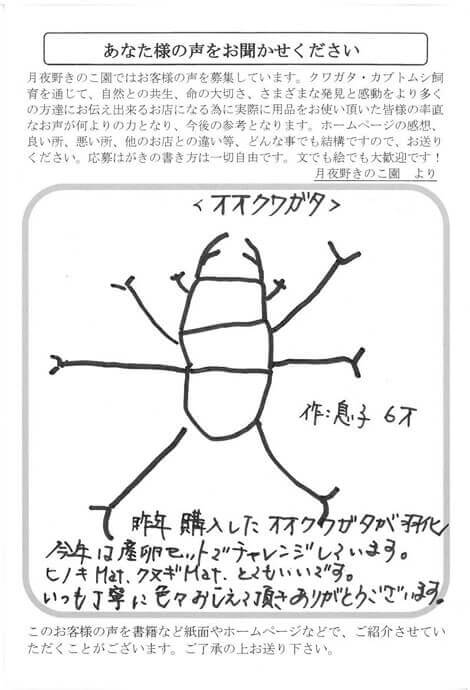 あなた様の声をお聞かせください
月夜野きのこ園ではお客様の声を募集しています。クワガタ・カブトムシ飼
育を通じて、自然との共生、命の大切さ、さまざまな発見と感動をより多く
の方達にお伝え出来るお店になる為に実際に用品をお使い頂いた皆様の率直
なお声が何よりの力となり、今後の参考となります。ホームページの感想、
良い所、悪い所、他のお店との違い等、どんな事でも結構ですので、お送り
ください。応募はがきの書き方は一切自由です。文でも絵でも大歓迎です！
月夜野きのこ園　より
＜オオクワガタ＞
作：息子 6才
昨年 購入したオオクワガタが羽化
今年は産卵セットでチャレンジしています。
ヒノキMat、クヌギMat、とてもいいです。
いつも丁寧に色々おしえて頂きありがとうございます。
このお客様の声を書籍など紙面やホームページなどで、ご紹介させてい
ただくことがございます。ご了承の上お送り下さい。